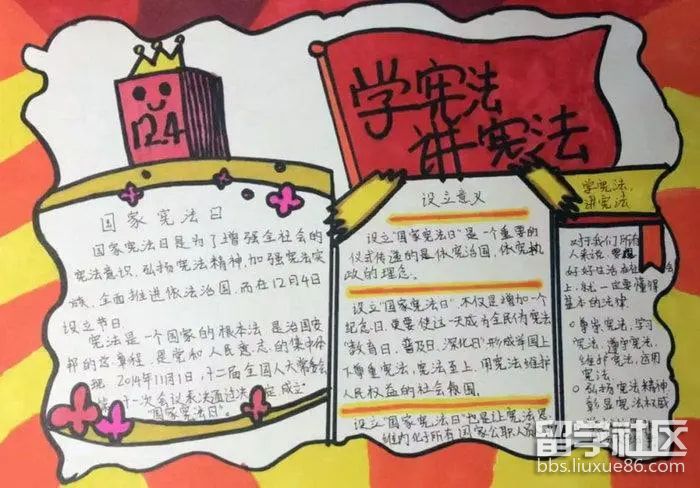 12.4
学宪法
讲宪法
国家宪法日
国家宪法日是为了增强全社会的
宪法意识,弘扬宪法精神,加强宪法实
施,全面推进依法治国,而在12月4日
设立节日.
宪法是一个国家的根本法是治国安
邦的总章程,是党和人民意志的集中体
现 2014年11月1日,十二届全国人大常委会
十一次会议表决通过决定成立
"国家宪法日".
设立意义
设立"国家宪法日"是一个重要的
仪式传递的是依宪治国,依宪执
政的理念.
设立"国家宪法日",不仅是增加一个
纪念日,更要使这一天成为全民
"教育日,普及日,深化日"形成举国上
下尊重宪法,宪法至上,用宪法维护
人民权益的社会氛围.
设立"国家宪法日"也是让宪法思
维内化于所有国家公职人员
学宪法,
讲宪法
对于我们所有
人来说,要想
好好生活在
上,就一定要懂得
基本的法律
尊崇宪法,学习
宪法,遵守宪法,
维护宪法,运用
宪法.
弘扬宪法精神
彰显宪法权威
留学社区
bbs.liuxue86.com